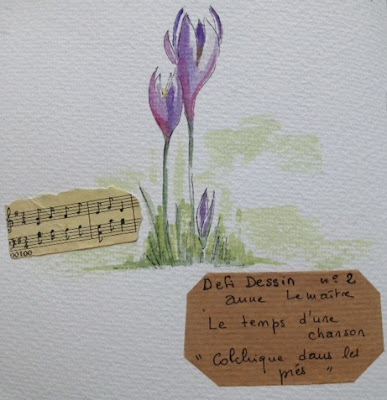 00100
Défi Dessin n°2
anne Lemaître
Le temps d'une
chanson
" Colchique dans les
prés "